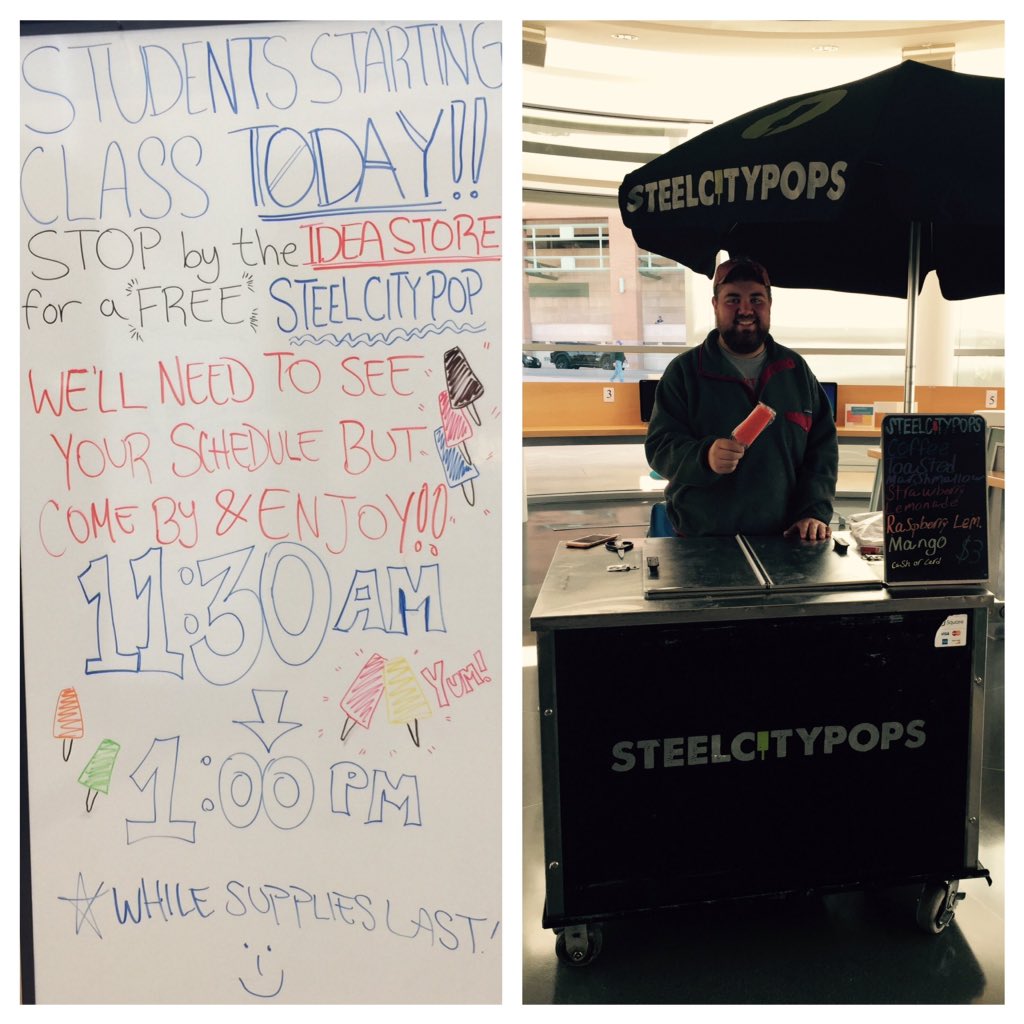 STUDENTS STARTING
CLASS TODAY!!!
STOP by the IDEA STORE
for a FREE STEEL CITY POP
WE'LL NEED TO SEE
YOUR SCHEDULE BUT
COME BY & ENJOY!!
11:30 AM
YUM!
1:00 PM
WHILE SUPPLIES LAST!
STEELCITYPOPS
3
5
STEELCITYPOPS
Coffee
Toasted
Marshmallow
Strawberry
Lemonade
Raspberry Lem.
Mango $3
Cash or Card
Square
VISA
STEELCITYPOPS